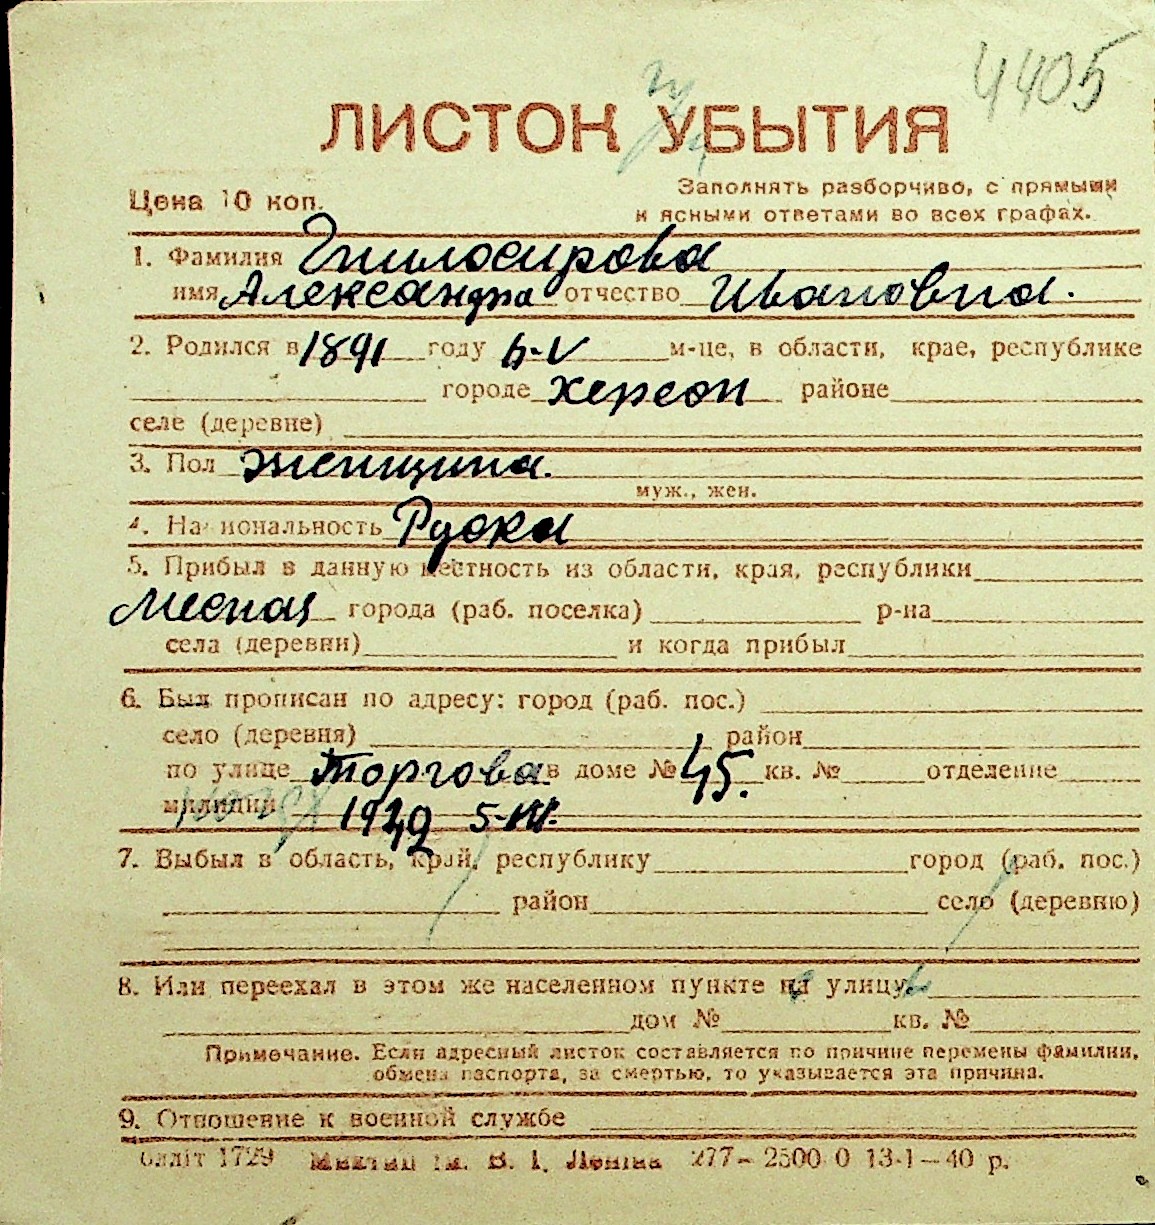 4405
ЛИСТОК УБЫТИЯ
Цена 10 коп.
Заполнять разборчиво, с прямыми
и ясными ответами во всех графах.
1. Фамилия Гнилосирова
имя Александра отчество Ивановна.
2. Родился в 1891 году 6-V м-це, в области, крае, республике
городе Херсон районе
селе (деревне)
3. Пол женщина.
муж., жен.
4. Национальность Руска
5. Прибыл в данную местность из области, края, республики
Месная города (раб. поселка) р-на
села (деревни) и когда прибыл
6. Был прописан по адресу: город (раб. пос.)
село (деревня) район
по улице Торгова в доме № 45. кв. № отделение
милиции 1942 5-VII.
7. Выбыл в область, край, республику город (раб. пос.)
район село (деревню)
8. Или переехал в этом же населенном пункте на улицу
дом № кв. №
Примечание. Если адресный листок составляется по причине перемены фамилии,
обмена паспорта, за смертью, то указывается эта причина.
9. Отношение к военной службе
1729 ім. В. І. Леніна 277—2500 0 13-1—40 р.